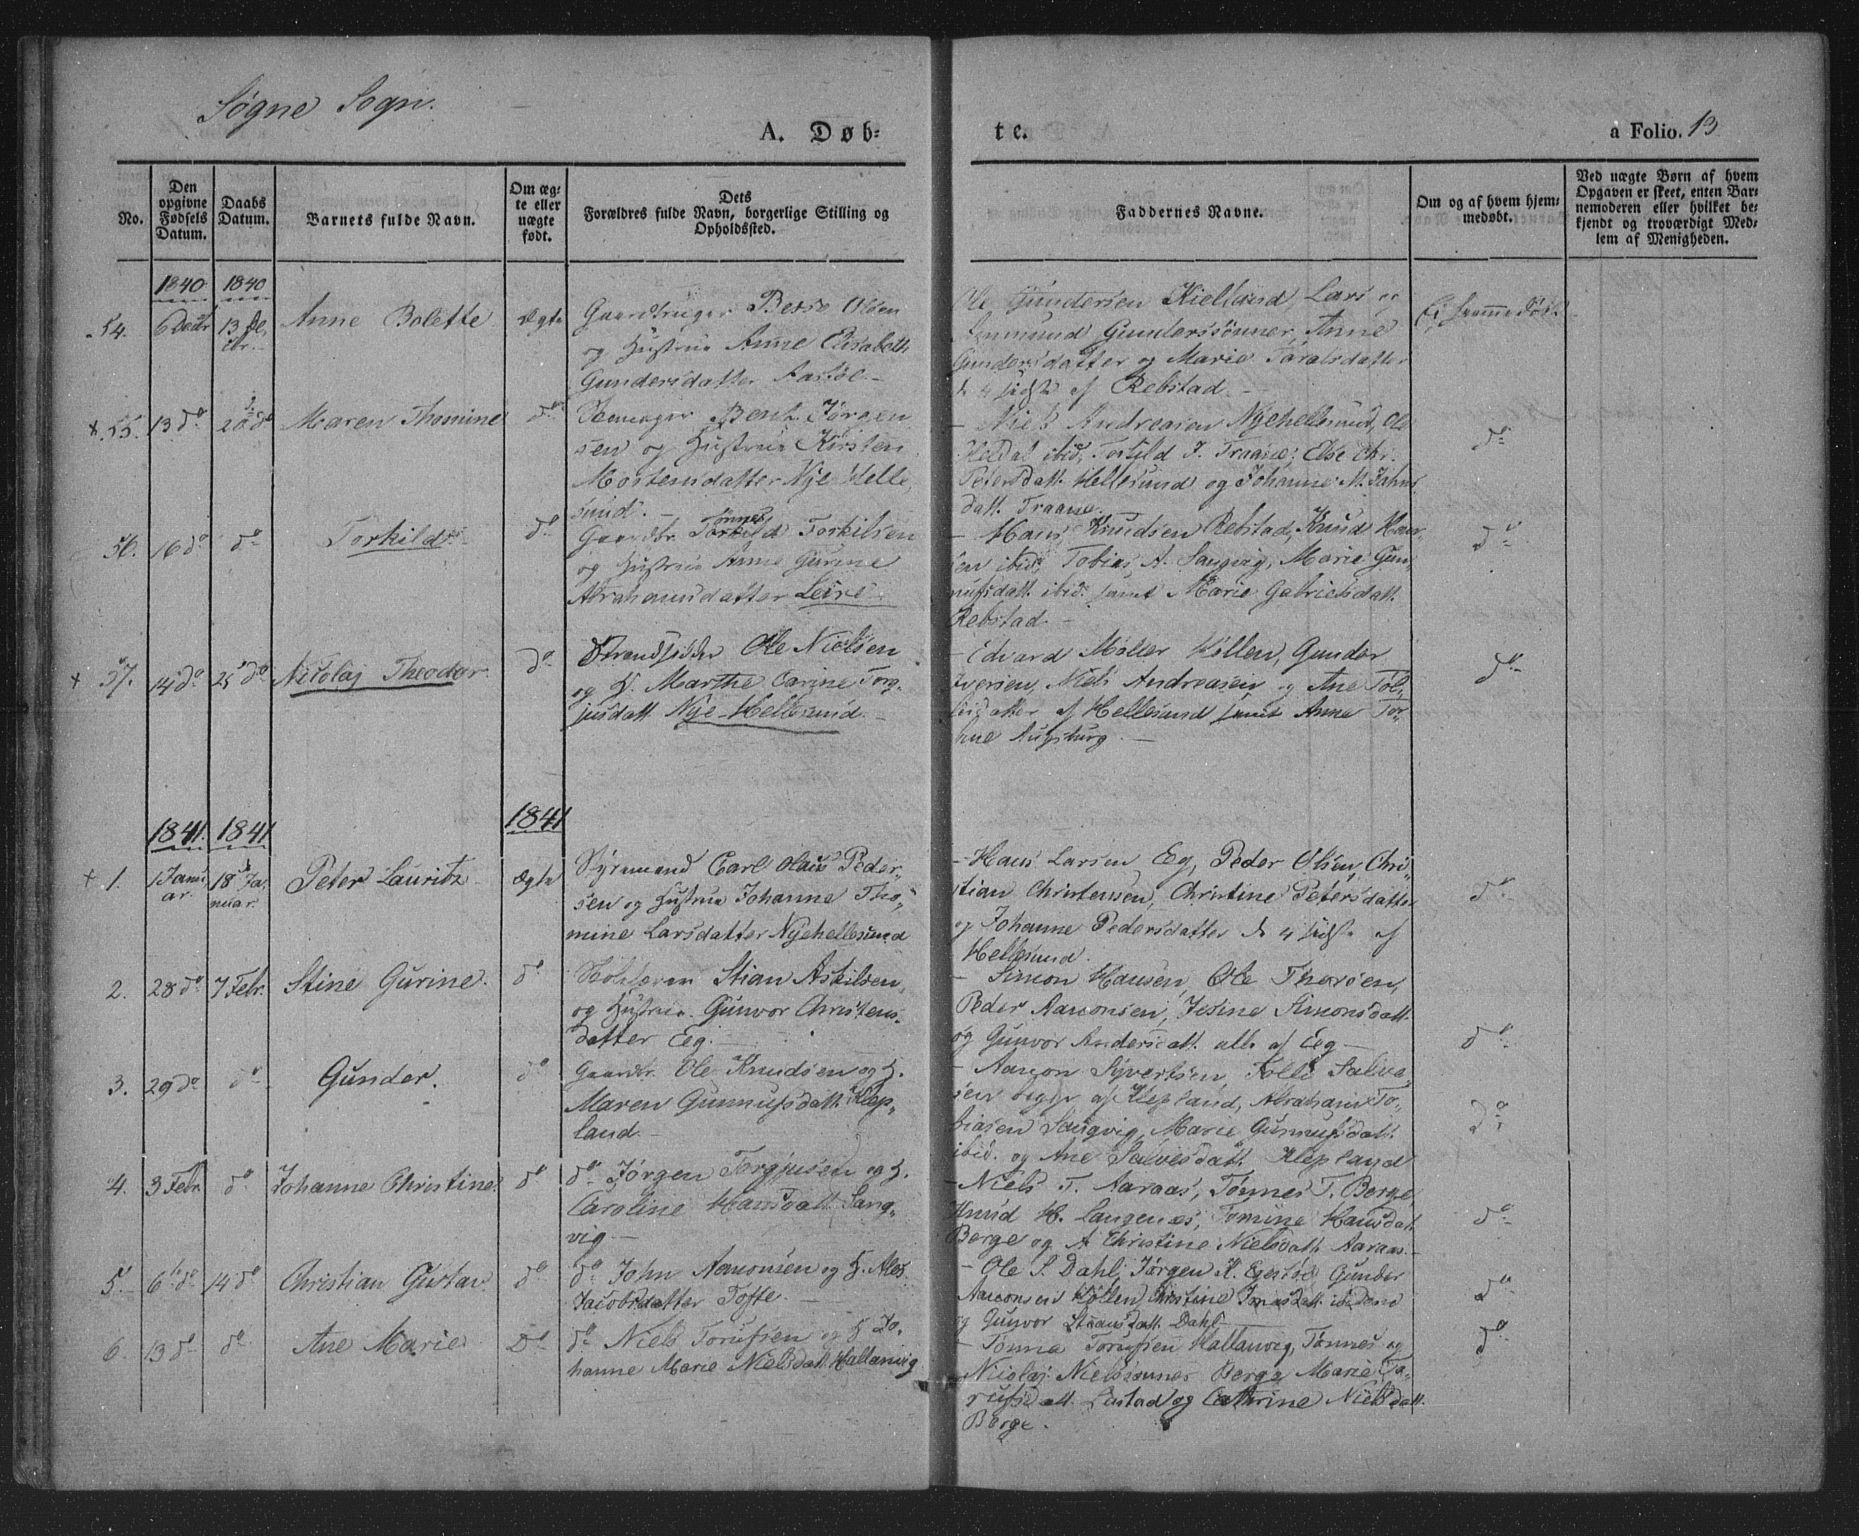 Søgne Sogn.
A. Døb-
te.
a Folio. 13
No.
Den opgivne Fødsels Datum.
Daabs Datum.
Barnets fulde Navn.
Om ægte eller uægte født.
Dets Forældres fulde Navn, borgerlige Stilling og Opholdssted.
Faddernes Navne.
Om og af hvem hjemmedøbt.
Ved uægte Børn af hvem Opgaven er skeet, enten Barnemoderen eller hvilket bekjendt og troværdigt Medlem af Menigheden.
1840 1840
54. 13 Anne Bolette Ægte
Gaardbruger Olsen
og Hustrue Anne Elisabeth
Gundersdatter
Ole Gundersen Kielland, Lars og
Gunderssønner, Anne
Gundersdatter og Marie Taralsdatter
de 4 sidste af Rebstad.
Ei hjemmedøbt
x 55. 13 do 20 do Maren Thomine do
Bent Jørgen
sen og Hustrue Kirsten
Mortensdatter Nye Helle
sund.
Niels Andreasen Nyehellesund, Ole
Heldal ibid, Torkild J. Traane; Else Chr.
Petersdatt. Hellesund og Johanne M. Jahns
datt. Traane.
do
56. 16 do do Torkild do
Gaardbr. Tønnes Torkilsen
og Hustrue Anne Gurine
Abrahamsdatter Leire
Hans Knudsen Rebstad, Knud Han
sen ibid, Tobias A. Sangvig, Marie Gun
nufsdatt. ibid. samt Marie Gabrielsdatt.
Rebstad.
do
x 57. 14 do 25 do Nicolaj Theodor do
Strandsidder Ole Nielsen
og H. Marthe Carine Torg-
jusdatt. Nye-Hellesund.
Edvard Møller Høllen, Gunder
Iversen, Niels Andreasen og Ane Tol-
af Hellesund samt Anna
Augsburg.
do
1841. 1841 1841
x 1. 1 Janu
ar. 18 Ja
nuar. Peter Lauritz Ægte
Styrmand Carl Olaus Peder-
sen og Hustrue Johanne Tho-
mine Larsdatter Nyehellesund
Hans Larsen Eg, Peder Olsen, Chri-
stian Christensen, Christine Petersdatter
og Johanne Pedersdatter de 4 sidste af
Hellesund.
do
2. 28 do 7 Febr. Stine Gurine. do
Stian Askilsen,
og Hustrue Gunvor Christens-
datter Eeg.
Simon Hansen, Ole Thorsen,
Peder Aanonsen, Jesine Simonsdatt.
og Gunvor Andersdatt. alle af Eeg
do
3. 29 do do Gunder. do
Gaardbr. Ole Knudsen og H.
Maren Gunnufsdatt. Klep-
land.
Aanon Syvertsen, Tolle Salve-
sen begge af Klepland, Abraham To-
biasen Sangvig, Marie Gunnufsdatt.
ibid. og Ane Salvesdatt. Klepland
do
4. 3 Febr. do Johanne Christine. do
do Jørgen Torgjusen og H.
Caroline Hansdatt. Sang-
vig
Niels T. Aaraas, Tønnes T. Berge
Knud H. Langenæs, Tomine Hansdat.
Berge og A Christine Nielsdatt. Aaraas.
do
5. 6 do 14 do Christian Gustav do
do John Aanonsen og H.
Jacobsdatter Tofte.
Ole S. Dahl, Jørgen K. Gunder
Aanonsen Høllen, Christine
og Gunvor Dahl
do
6. 13 do do Ane Marie Do
do Niels Torufsen og H. Jo-
hanne Marie Nielsdatt. Hallanvig
Tønne Torufsen Hallanvig, Tønnes og
Nicolaj Nielssønner Berge, Marie To-
rufsdatt. og Cathrine Nielsdatt.
Berge.
do